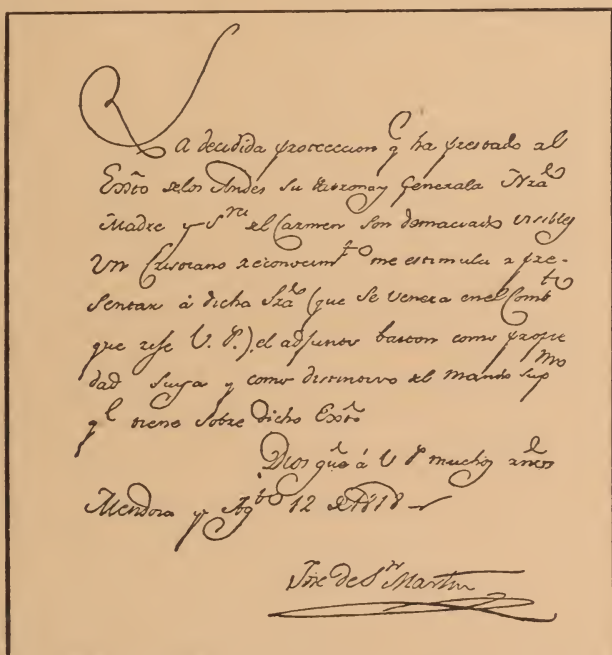 La decidida proteccion q.e ha prestado al
Exto. de los Andes su Patrona y Generala Nra.
Madre y S.ra del Carmen son demaciado visibles
Un Cristiano reconocim.to me estimula a pre-
sentar á dicha Sra. (que se venera en el Comb.to
que rije V. P.) el adjunto baston como propie
dad suya y como distintivo del mando sup.mo
q.e tiene sobre dicho Exto.
Dios gue. á V P muchos años
Mendoza y Ag.to 12 de 1818
José de S.n Martin